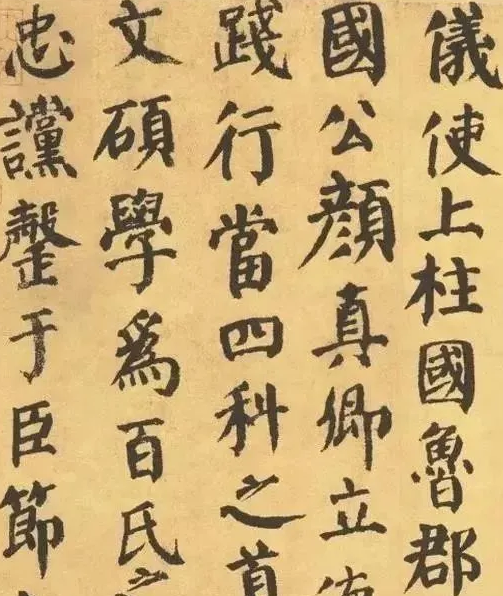 儀使上柱國魯郡
國公顏真卿立德
踐行當四科之首
文碩學爲百氏之
忠讜罄于臣節